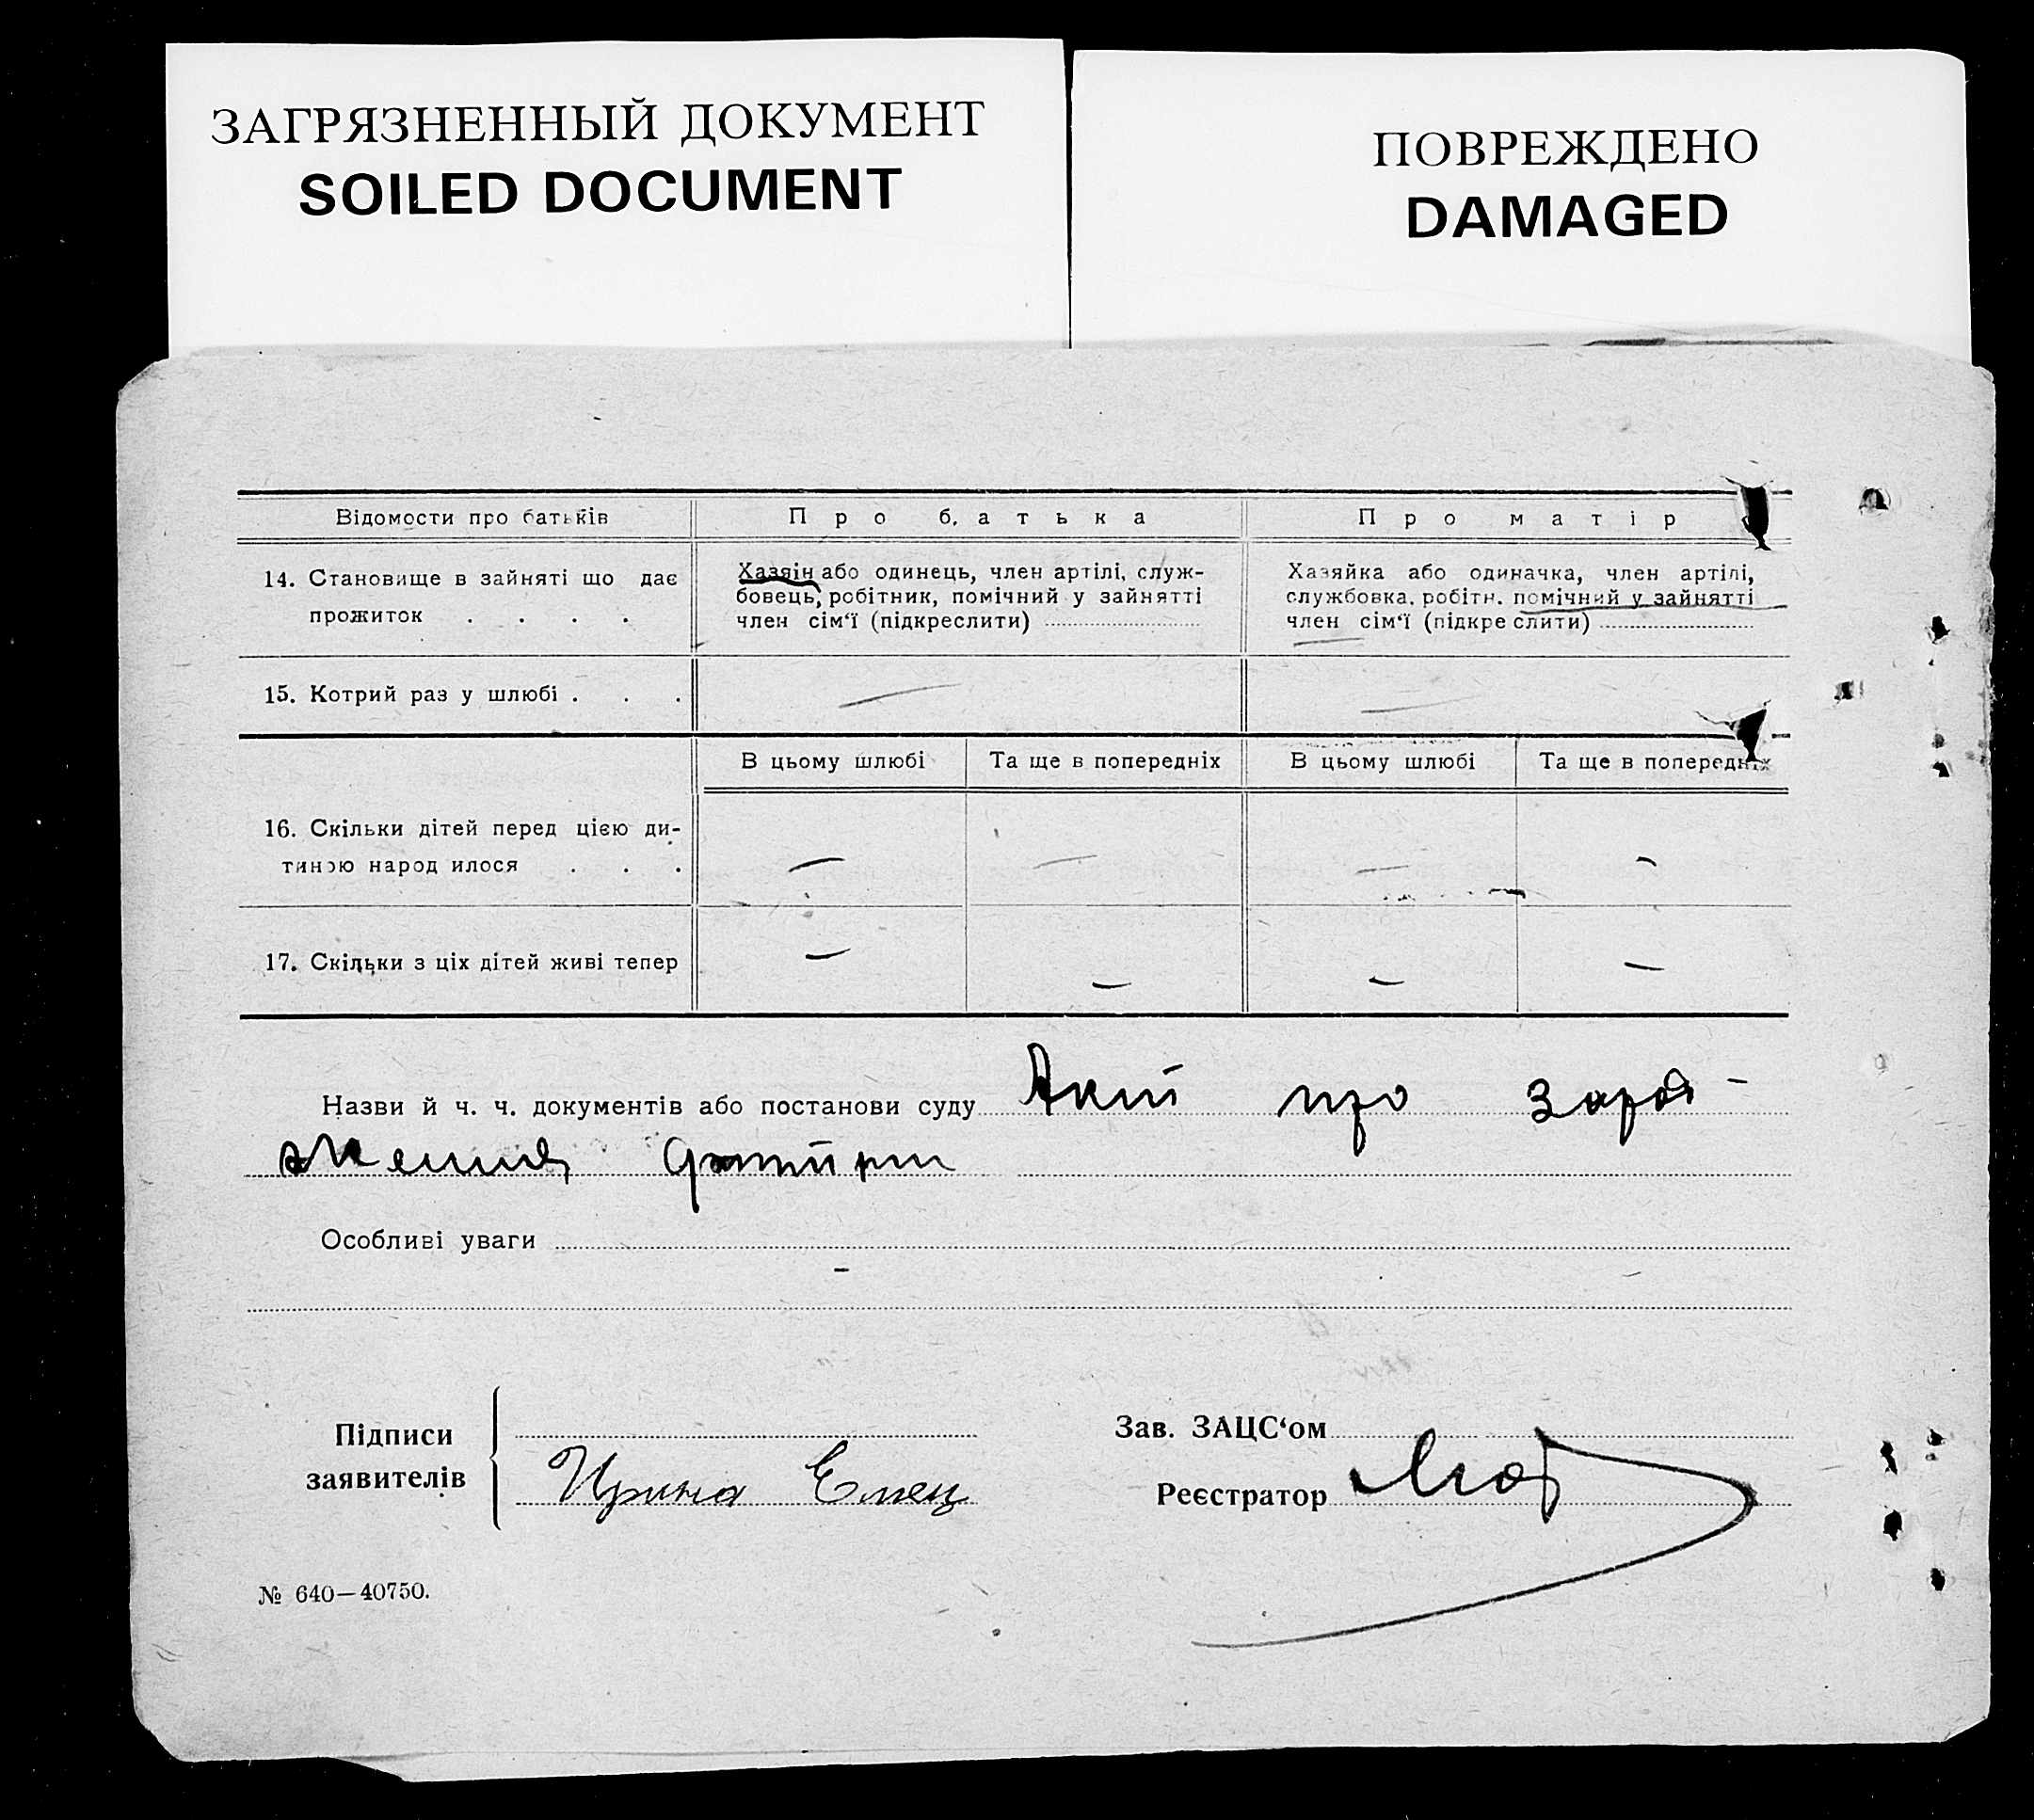 ЗАГРЯЗНЕННЫЙ ДОКУМЕНТ
SOILED DOCUMENT
ПОВРЕЖДЕНО
DAMAGED
Відомости про батьків
Про батька
Про матір
14. Становище в зайняті що дає
прожиток . . . .
Хазяін або одинець, член артілі, служ-
бовець, робітник, помічний у зайнятті
член сім‘ї (підкреслити)
Хазяйка або одиначка, член артілі,
службовка, робітн. помічний у зайнятті
член сім‘ї (підкреслити)
15. Котрий раз у шлюбі . . .
В цьому шлюбі
Та ще в попередніх
В цьому шлюбі
Та ще в попередніх
16. Скільки дітей перед цією ди-
тиною народилося . . .
17. Скільки з ціх дітей живі тепер
Назви й ч. ч. документів або постанови суду Акт про
Особливі уваги
Підписи
заявителів
Ирина Емец
Зав. ЗАЦС‘ом
Реєстратор
№ 640—40750.